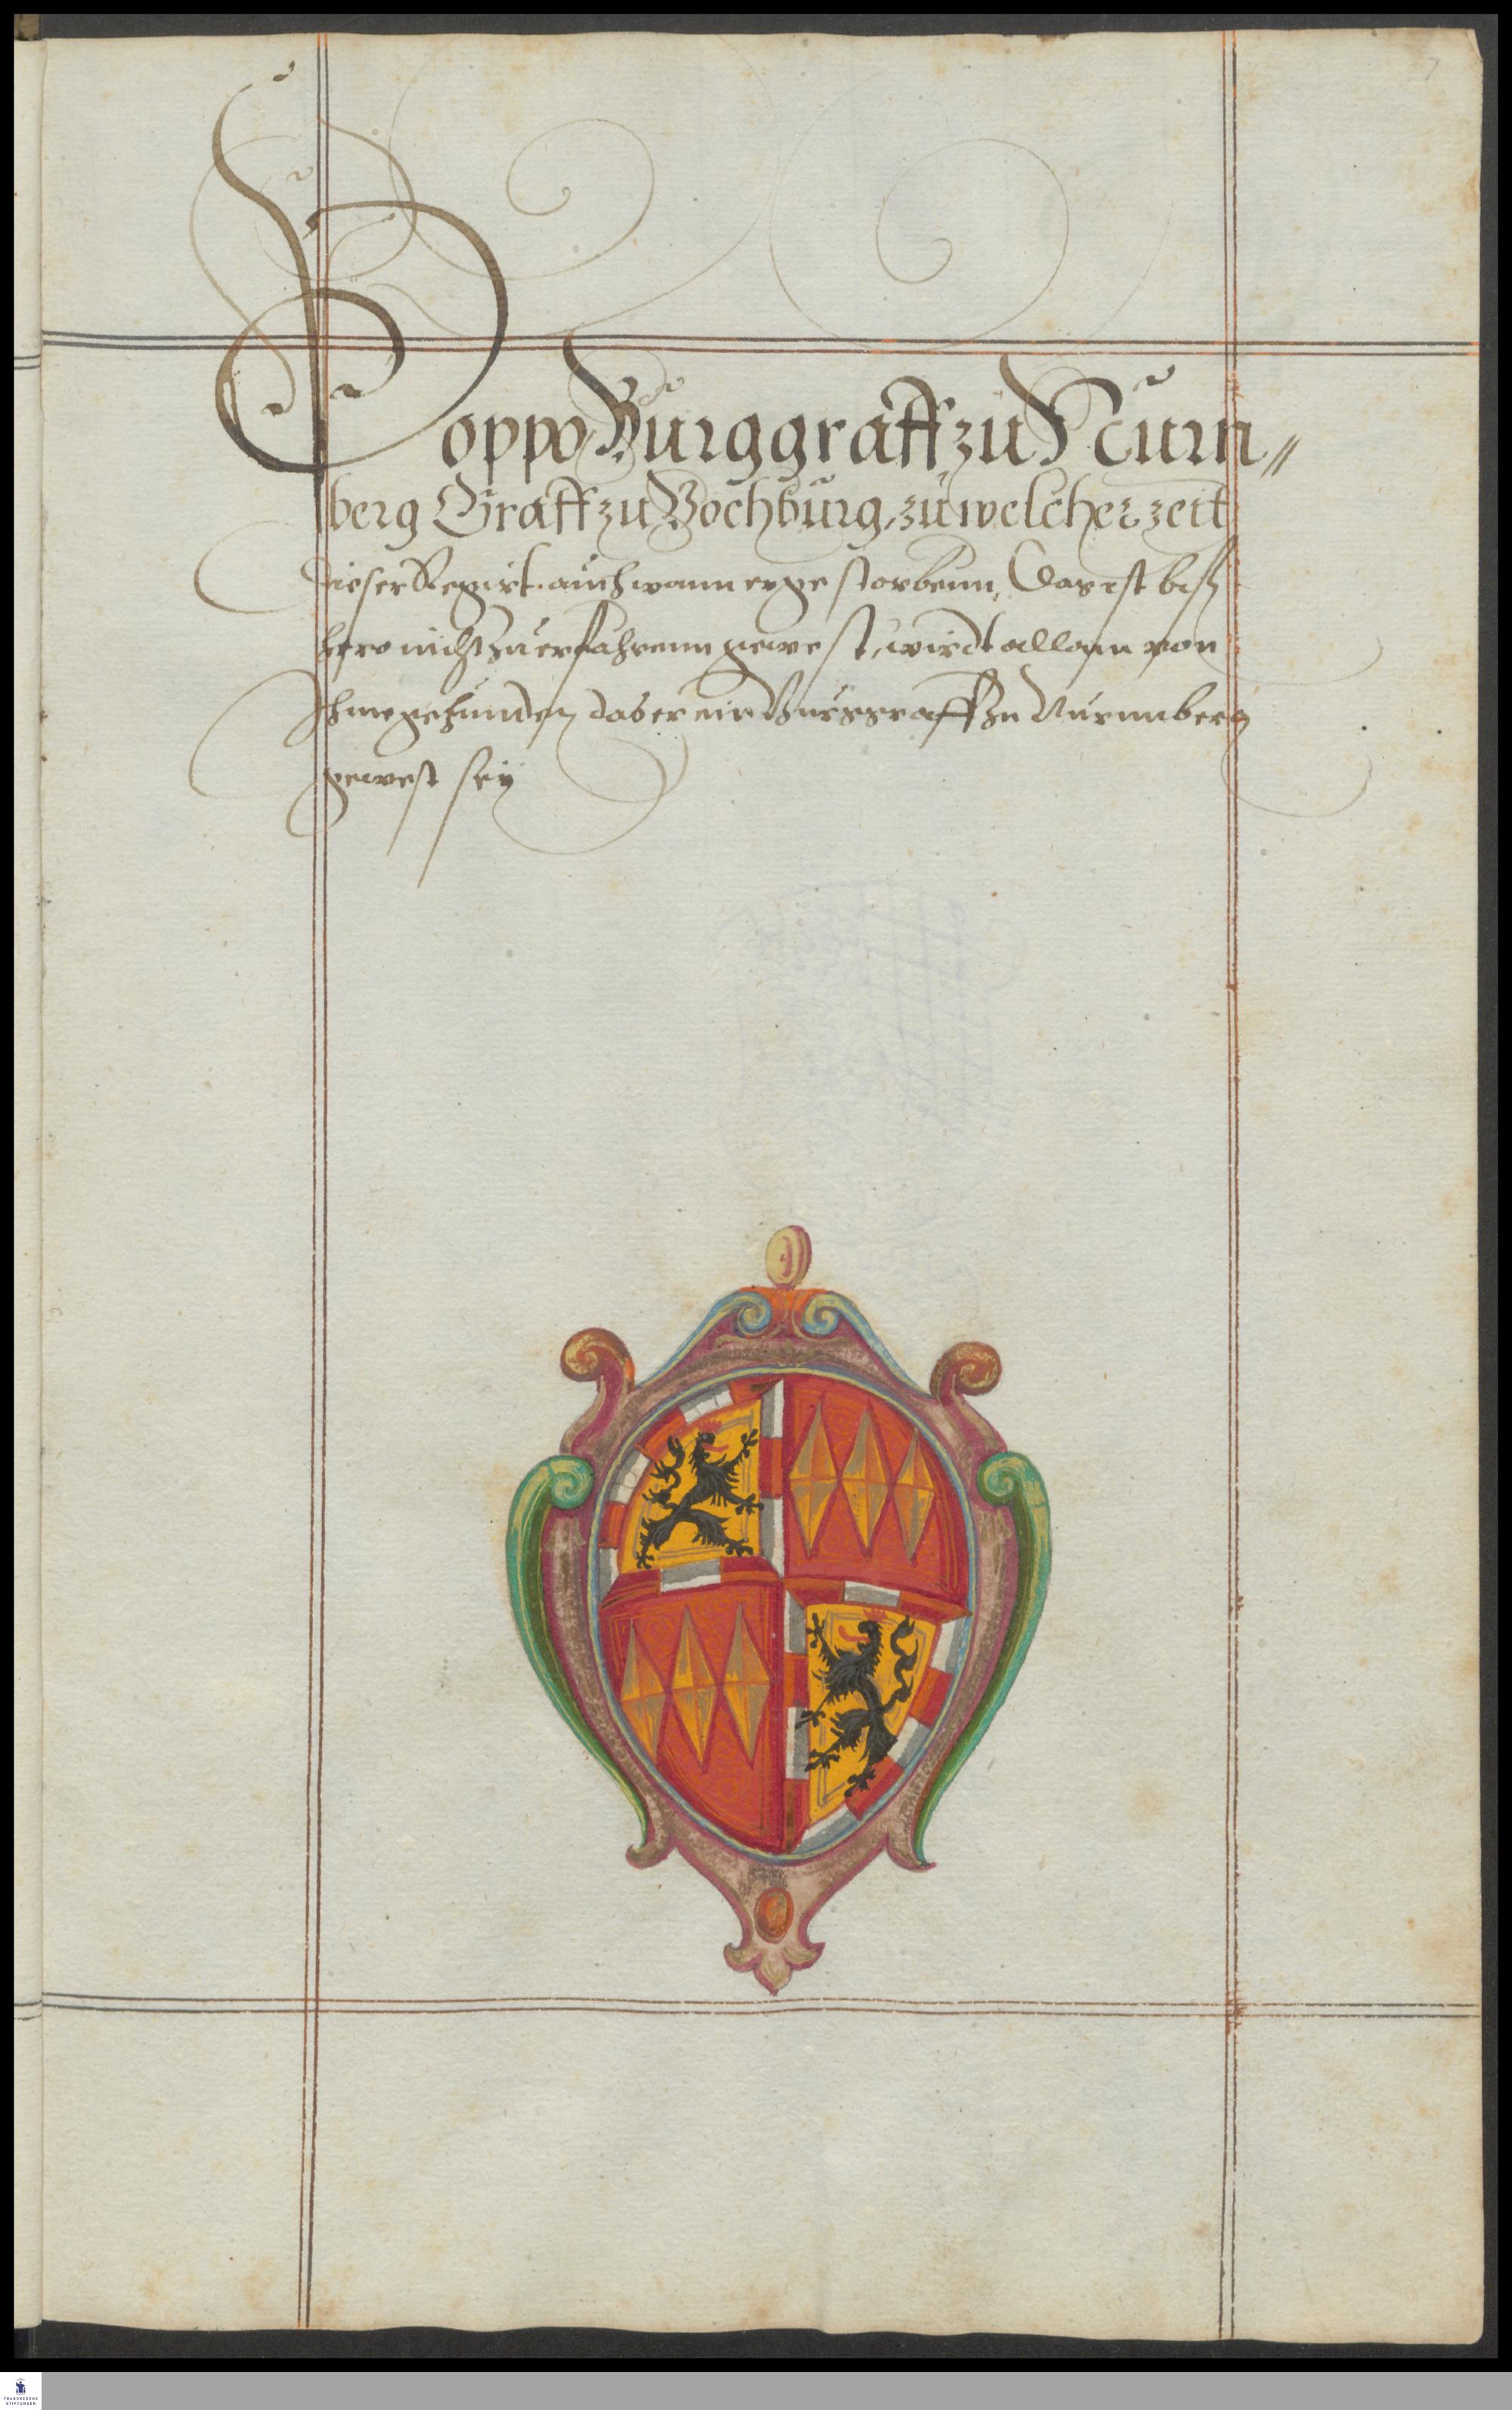 7
Poppo Burggraff zu Nurn„
berg Graff zu Vochburg, zu welcher zeit
dieser Regirt. auch wann er gestorbenn, Das ist biß
hero nicht zu erfahrenn gewest, wirdt allein von
Ihme gefunden das er ein Burggraff zu Nurmberg
gewest sey
FRANCKESCHE
STIFTUNGEN